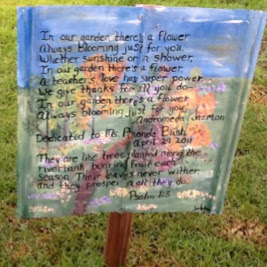 In our garden there's a flower
Always blooming just for you.
Whether sunshine or a shower,
In our garden there's a flower.
A teacher's love has super power
We give thanks for all you do
In our garden there's a flower
Always blooming just for you,
Andromeda
Dedicated to Ms. Amanda
April 29 2011
They are like trees planted along the
river bank bearing fruit each
season. Their leaves never wither
and they prosper in all they do.
Psalm 1:3